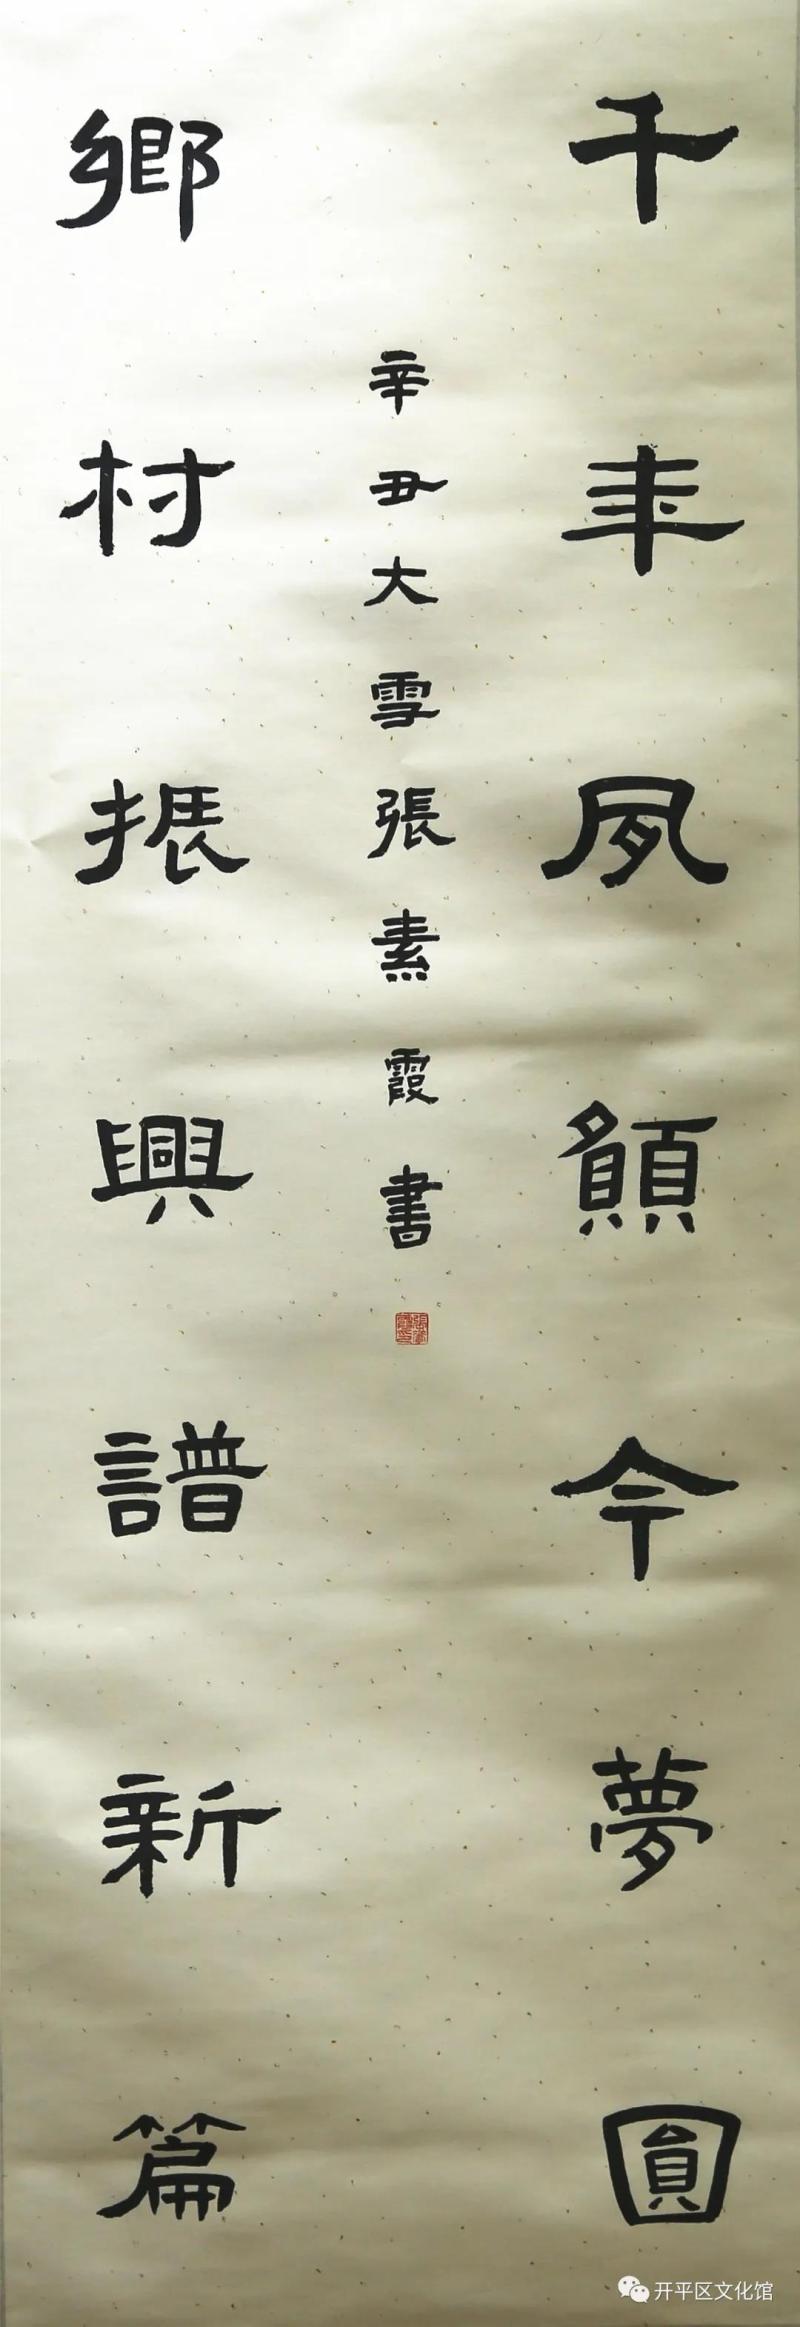 千年夙願今夢圓
辛丑大雪張素霞書
鄉村振興譜新篇
开平区文化馆